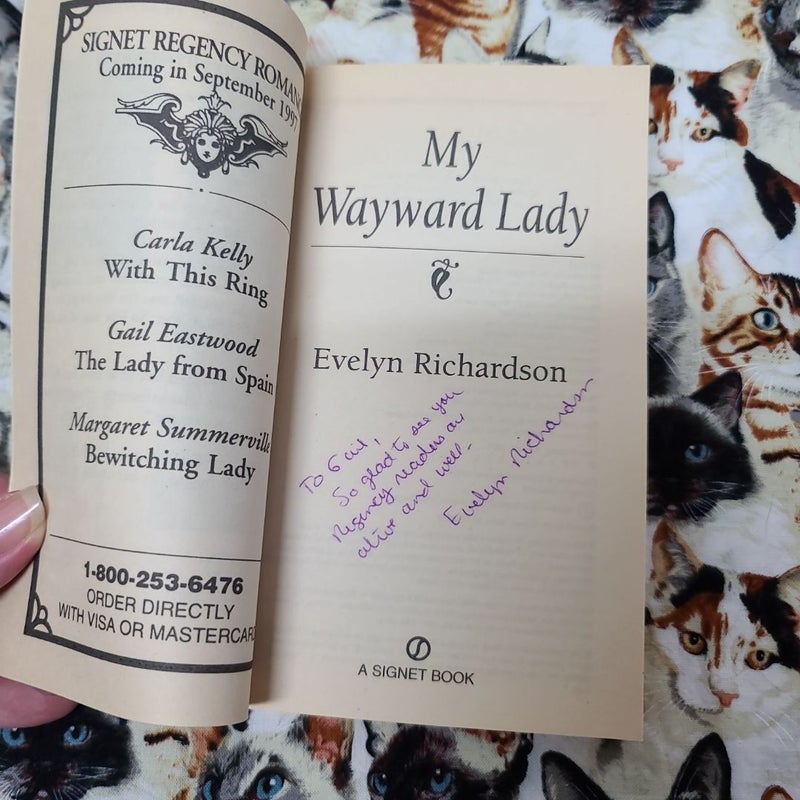 SIGNET REGENCY ROMAN
Coming in September 1997
Carla Kelly
With This Ring
Gail Eastwood
The Lady from Spain
Margaret Summerville
Bewitching Lady
1-800-253-6476
ORDER DIRECTLY
WITH VISA OR MASTERCARD
My
Wayward Lady
Evelyn Richardson
To Gail,
So glad to see you
Regency readers are
alive and well.
Evelyn Richardson
A SIGNET BOOK